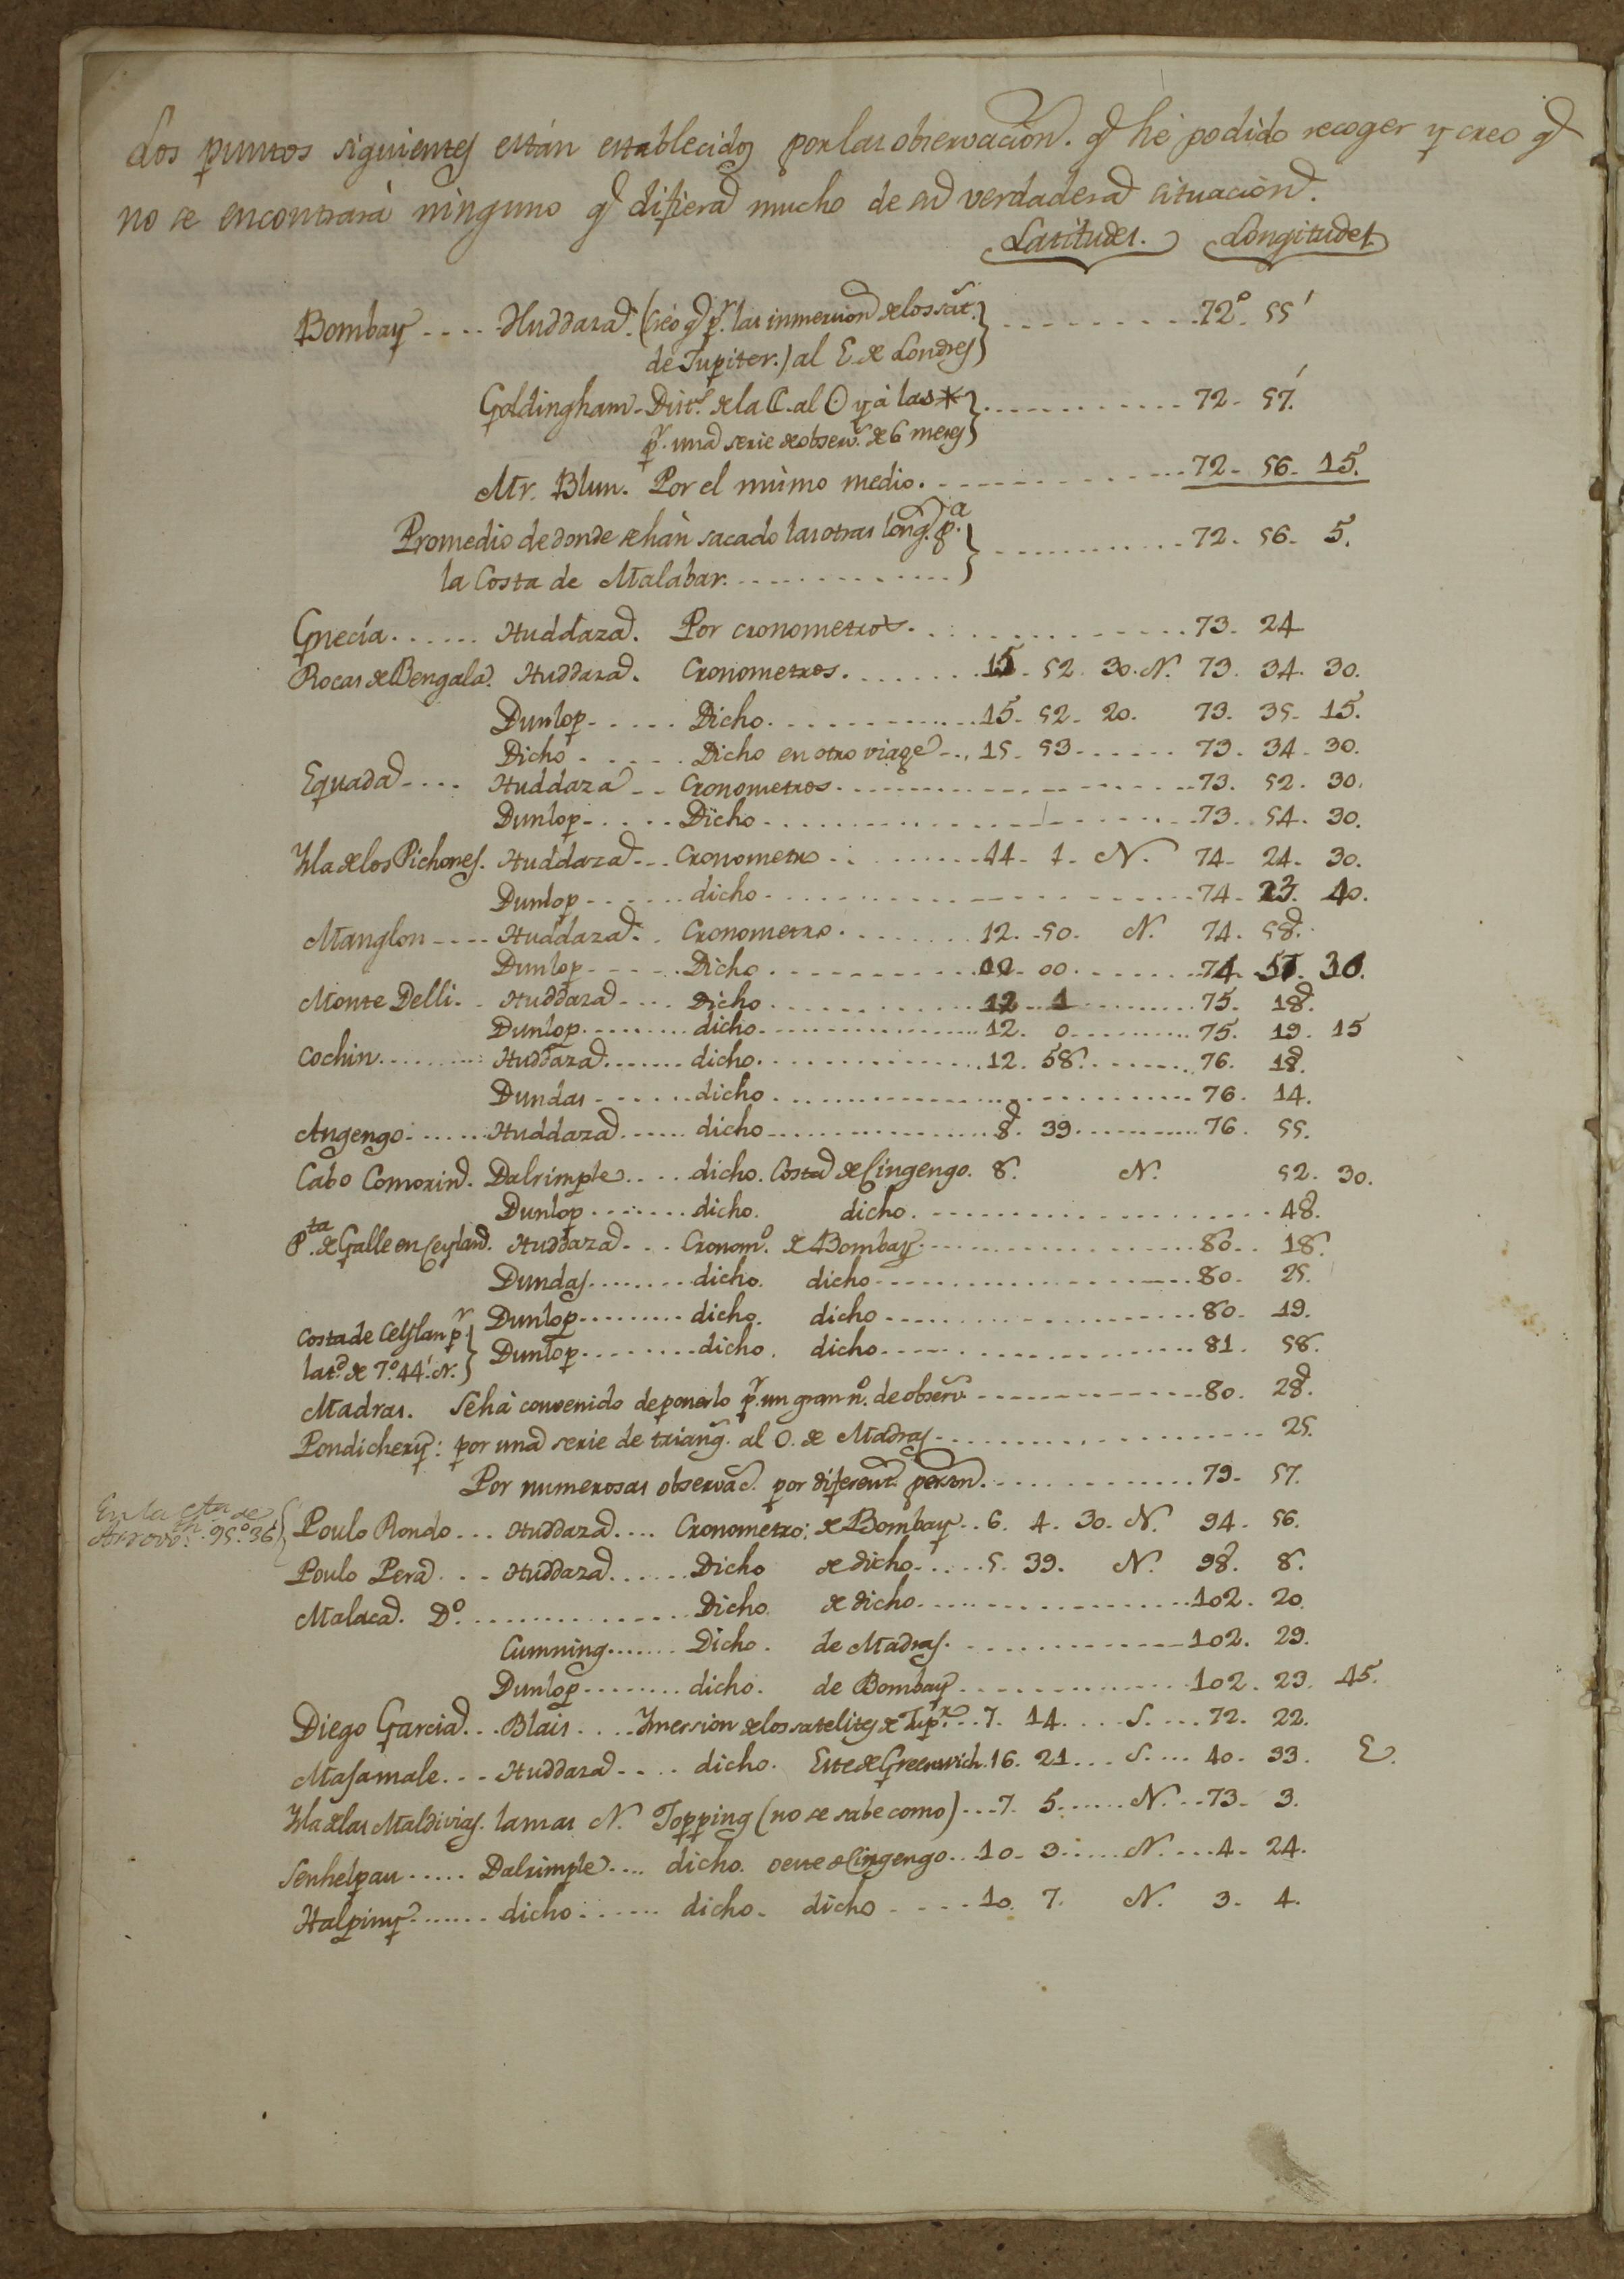 Los puntos siguientes están establecidos por las observacion. q.e hé podido recoger y creo q.e
no se encontrará ninguno q.e difiera mucho de su verdadera situación.
Latitudes. Longitudes
Bombay .... Huddara. (creo q.e p.r las inmersion de los sat. ............ 72° 55'
de Jupiter.) al E. de Londres
Goldingham - Dist.s de la ☾ al ☉ y á las * ............ 72 - 57.'
p.r una serie de observ.s de 6 meses
Mr. Blun. Por el mismo medio. ............ 72 - 56 - 15.
Promedio de donde se hán sacado las otras long. p.a ............ 72 - 56 - 5.
la Costa de Malabar. ..............
Gnecía ...... Huddaza. Por cronometros. ............ 73 - 24
Rocas de Bengala. Huddaza. Cronometros. ........ 15 - 52 - 30. N. 73. 34. 30.
Dunlop ..... Dicho ............ 15 - 52 - 20. 73. 35 - 15.
Dicho ..... Dicho en otro viage ... 15 - 53 ...... 73 - 34 - 30.
Equada .... Huddaza .. Cronometros ............ 73. 52. 30.
Dunlop ..... Dicho ............ 73. 54. 30.
Ysla de los Pichones. Huddaza ... Cronometro .......... 14 - 1 - N. 74 - 24 - 30.
Dunlop ...... dicho ............ 74 - 23. 40.
Manglon .... Huddaza .. Cronometro ........ 12 - 50. N. 74. 58.
Dunlop ...... Dicho ............ 12 - 00 ....... 74. 57. 30.
Monte Delli. . Huddaza .... Dicho ............ 12 - 1 ........ 75. 18.
Dunlop ......... dicho ............ 12. 0 ......... 75. 19. 15
Cochin ......... Huddaza ....... dicho ............ 12. 58 ........ 76. 18.
Dundas ...... dicho ............ 76. 14.
Angengo ....... Huddaza ...... dicho ............ 8. 39 .......... 76. 55.
Cabo Comorin. Dalrimple .... dicho. Costa de Cingengo. 8. N. 52. 30.
Dunlop ....... dicho. dicho. ............ 48.
P.ta de Galle en Ceylan. Huddaza ... Cronom.o de Bombay ............ 80.. 18.
Dundas ......... dicho. dicho ............ 80. 25.
Dunlop ......... dicho. dicho ............ 80. 19.
Costa de Ceylan p.r
lat.d de 7.° 44.' N. Dunlop ......... dicho. dicho ............ 81. 58.
Madras. Se há convenido de ponerlo p.r un gran n.o de observ. ............ 80. 28.
Pondichery: por una serie de triang. al O. de Madras ............ 25.
Por numerosas observac. por diferent. person. ............ 79 - 57.
En la Cta de
Arrow.th 95.° 36
Poulo Rondo ... Huddaza .... Cronometro: de Bombay .. 6. 4. 30. N. 94. 56.
Poulo Pera .... Huddaza ...... Dicho de dicho ..... 5. 39. N. 98. 8.
Malaca. D.o ............... Dicho. de dicho ............ 102. 20.
Cumning ....... Dicho. de Madras. ............ 102. 29.
Dunlop ........ dicho. de Bombay ............ 102. 23. 45.
Diego Garcia ... Blair .... Ymersion de los satelites de Jup.r ... 7. 14 .... S. ... 72. 22.
Masamale ... Huddaza .... dicho. Este de Greenwich. 16. 21 ... S. ... 40 - 33. E.
Ysla de las Maldivias. la mas N. Topping (no se sabe como) ... 7. 5 ...... N. .. 73 - 3.
Senhelpau ..... Dalrimple .... dicho. oeste de Cingengo .. 10 - 3 ..... N. ... 4 - 24.
Halpiny ....... dicho ...... dicho - dicho .... 10. 7. N. 3 - 4.